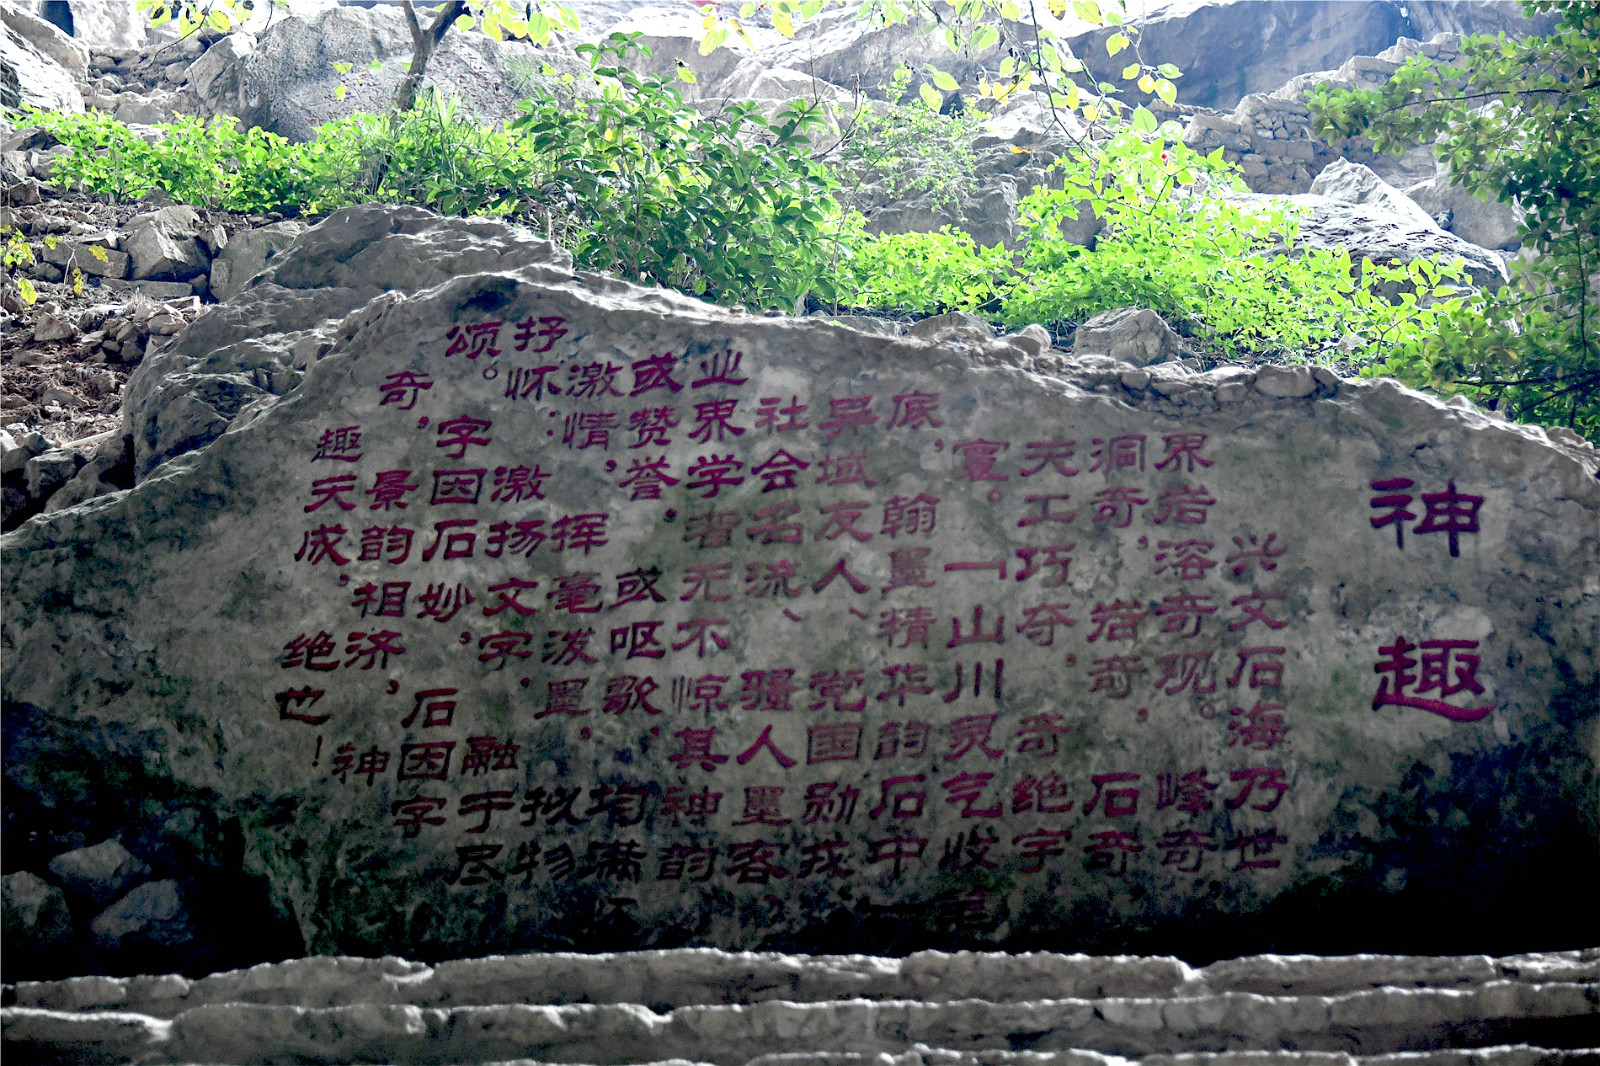 神趣
兴文石海乃世
界岩溶奇观。峰奇,
洞奇,岩奇,石奇
天工巧夺,奇绝宇
寰。「山川灵气收
底,翰墨精华韵石中」
异域友人、党国勋戎、
社会名流、骚人墨客,
业界学者无不惊其神韵
或赞誉,或呕歌,均满怀
激情,挥毫泼墨,拟物
抒怀:激扬文字,融于尽
颂。字因石妙,石因字
奇,景韵相济,神
趣天成,绝世!